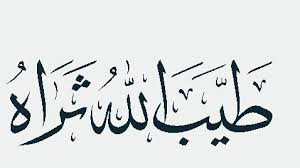 طَيَّبَ اللهُ ثَرَاهُ